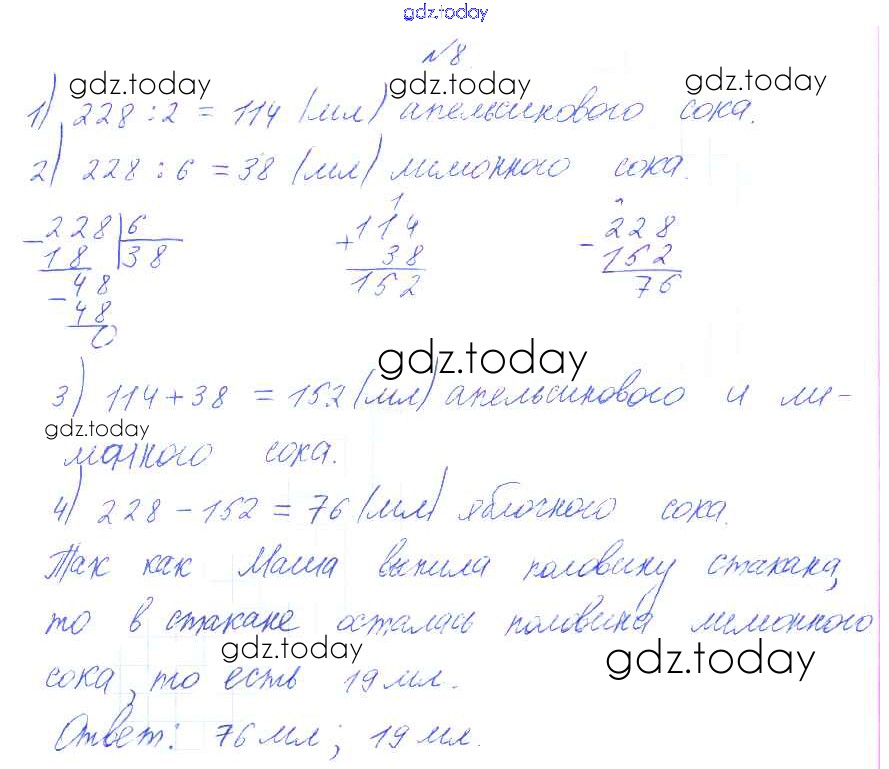 gdz.today
№8
gdz.today gdz.today gdz.today
1) 228 : 2 = 114 (мл) апельсинового сока.
2) 228 : 6 = 38 (мл) лимонного сока.
- 228 | 6
18 | 38
- 48
48
0
1
+ 114
38
152
- 228
152
76
gdz.today
3) 114 + 38 = 152 (мл) апельсинового и ли-
gdz.today
монного сока.
4) 228 - 152 = 76 (мл) яблочного сока.
Так как Маша выпила половину стакана,
то в стакане осталась половина лимонного
gdz.today gdz.today
сока, то есть 19 мл.
Ответ: 76 мл; 19 мл.